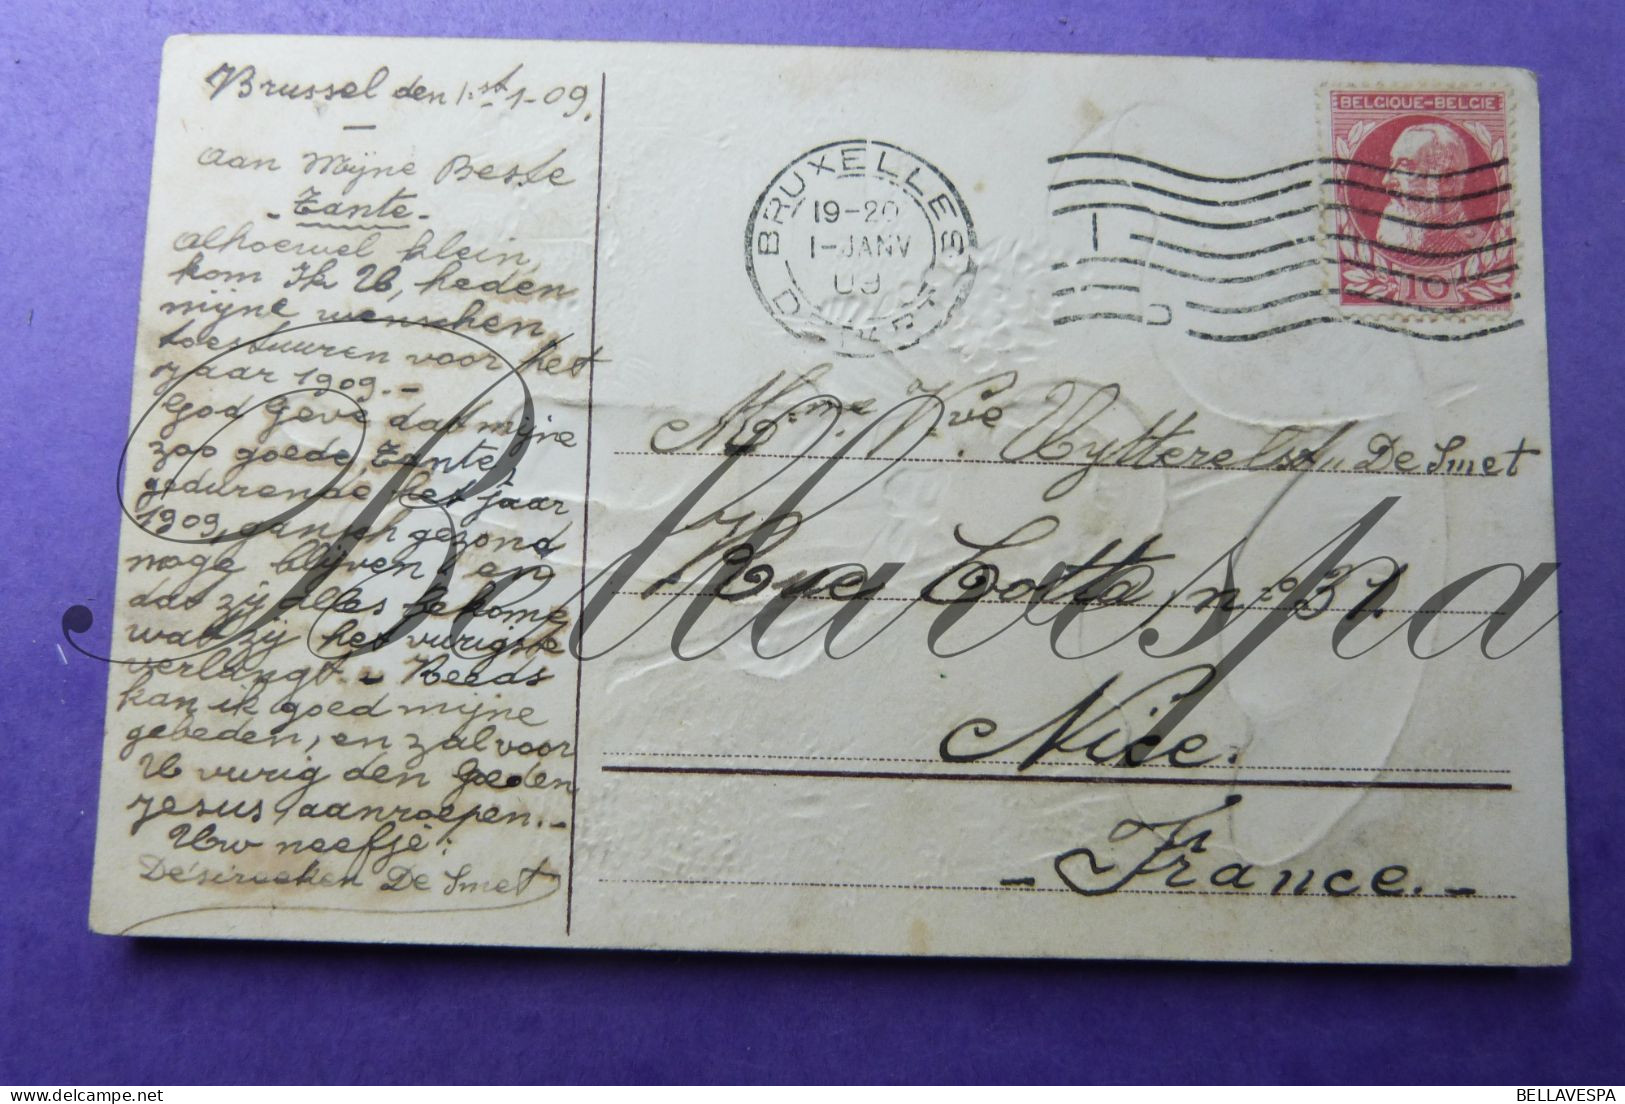 Brussel den 1.st 1-09.
Aan Mijne Beste
- Tante -
Alhoewel klein,
kom Ik U, heden
mijne wenschen,
toestuuren voor het
jaar 1909. -
God Geve dat mijne
zoo goede, Tante,
gedurende het jaar
1909, gansch gezond
moge blijven en
dat zij alles bekome
wat zij het vurigste
verlangt. - Reeds
kan ik goed mijne
gebeden, en zal voor
U vurig den Goeden
Jesus, aanroepen. -
Uw neefje:
De Smet
BRUXELLES
19-20
1-JANV
09
DEPART
BELGIQUE-BELGIE
10
Mme. Vve Uytterelst,, De Smet
Rue Cotta no 31.
Nice.
- France. -
Bellavespa
BELLAVESPA